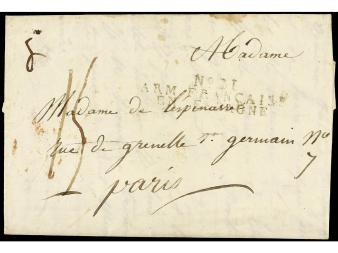 A Madame
No. 21
ARM. FRANÇAISE
EN ESPAGNE
Madame de Lespinasse
rue de grenelle St. germain No
7
paris
15